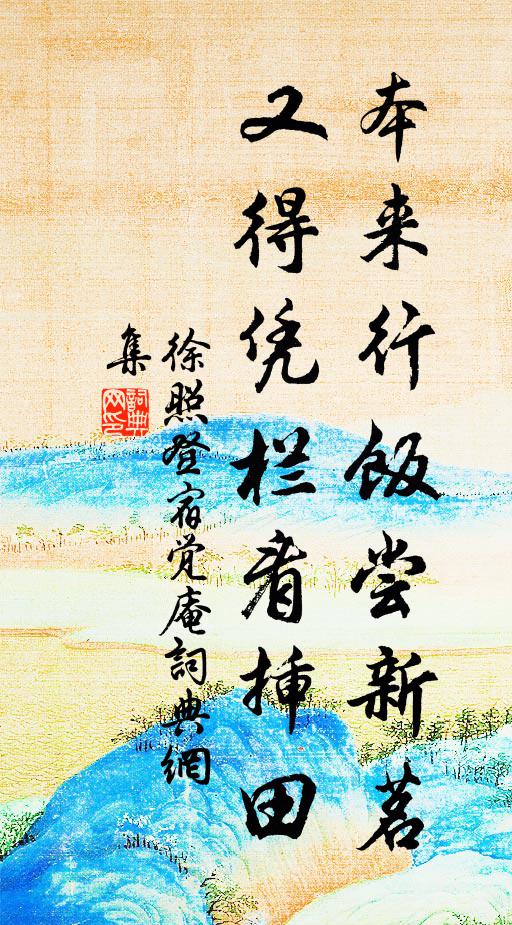 本来行饭尝新茗
又得凭栏看插田
徐照登宿觉庵詞典網
集
詞典网印